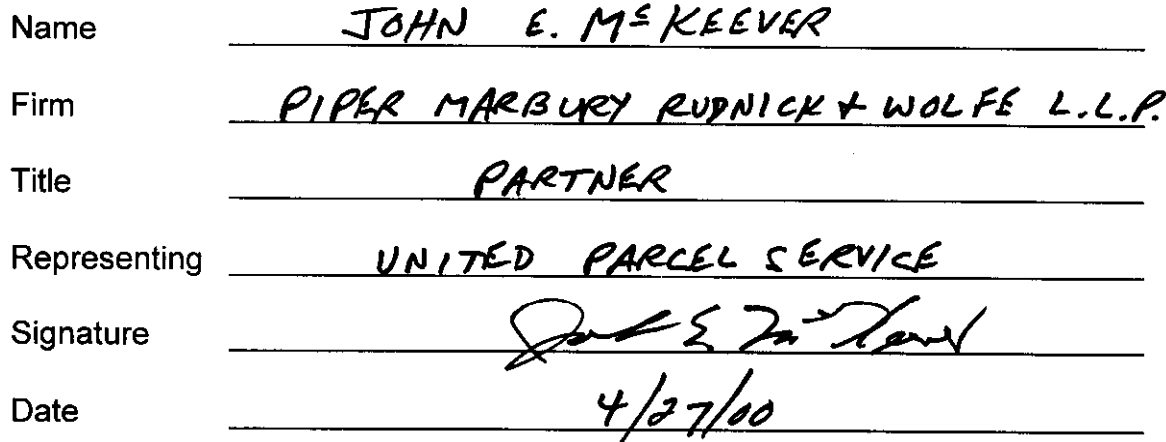 Name JOHN E. McKEEVER
Firm PIPER MARBURY RUDNICK + WOLFE L.L.P.
Title PARTNER
Representing UNITED PARCEL SERVICE
Signature John E McKeever
Date 4/27/00